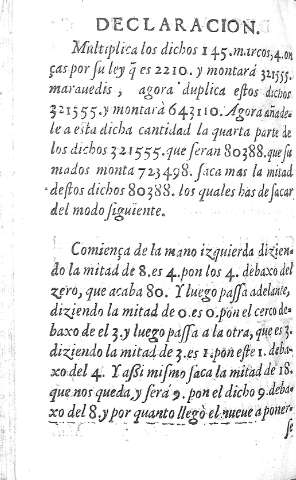 DECLARACION.
Multiplica los dichos 145. marcos, 4. on-
ças por su ley q̃ es 2210. y montarà 321555.
marauedis, agora duplica estos dichos
321555. y montarà 643110. Agora añade-
le a esta dicha cantidad la quarta parte de
los dichos 321555. que seran 80388. que su
mados monta 723498. saca mas la mitad
destos dichos 80388. los quales has de sacar
del modo siguiente.
Comiença de la mano izquierda dizien-
do la mitad de 8. es 4. pon los 4. debaxo del
zero, que acaba 80. Y luego passa adelante,
diziendo la mitad de 0. es 0. pon el cerco de-
baxo de el 3. y luego passa a la otra, que es 3.
diziendo la mitad de 3. es 1. pon este 1. deba-
xo del 4. Y assi mismo saca la mitad de 18.
que nos queda, y serà 9. pon el dicho 9. deba-
xo del 8. y por quanto llegò el nueue a poner-
se